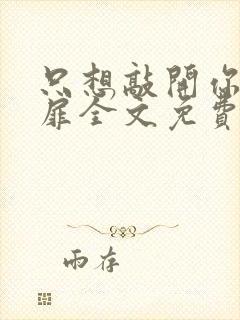 只想敲開你
扉全文免費
雨存